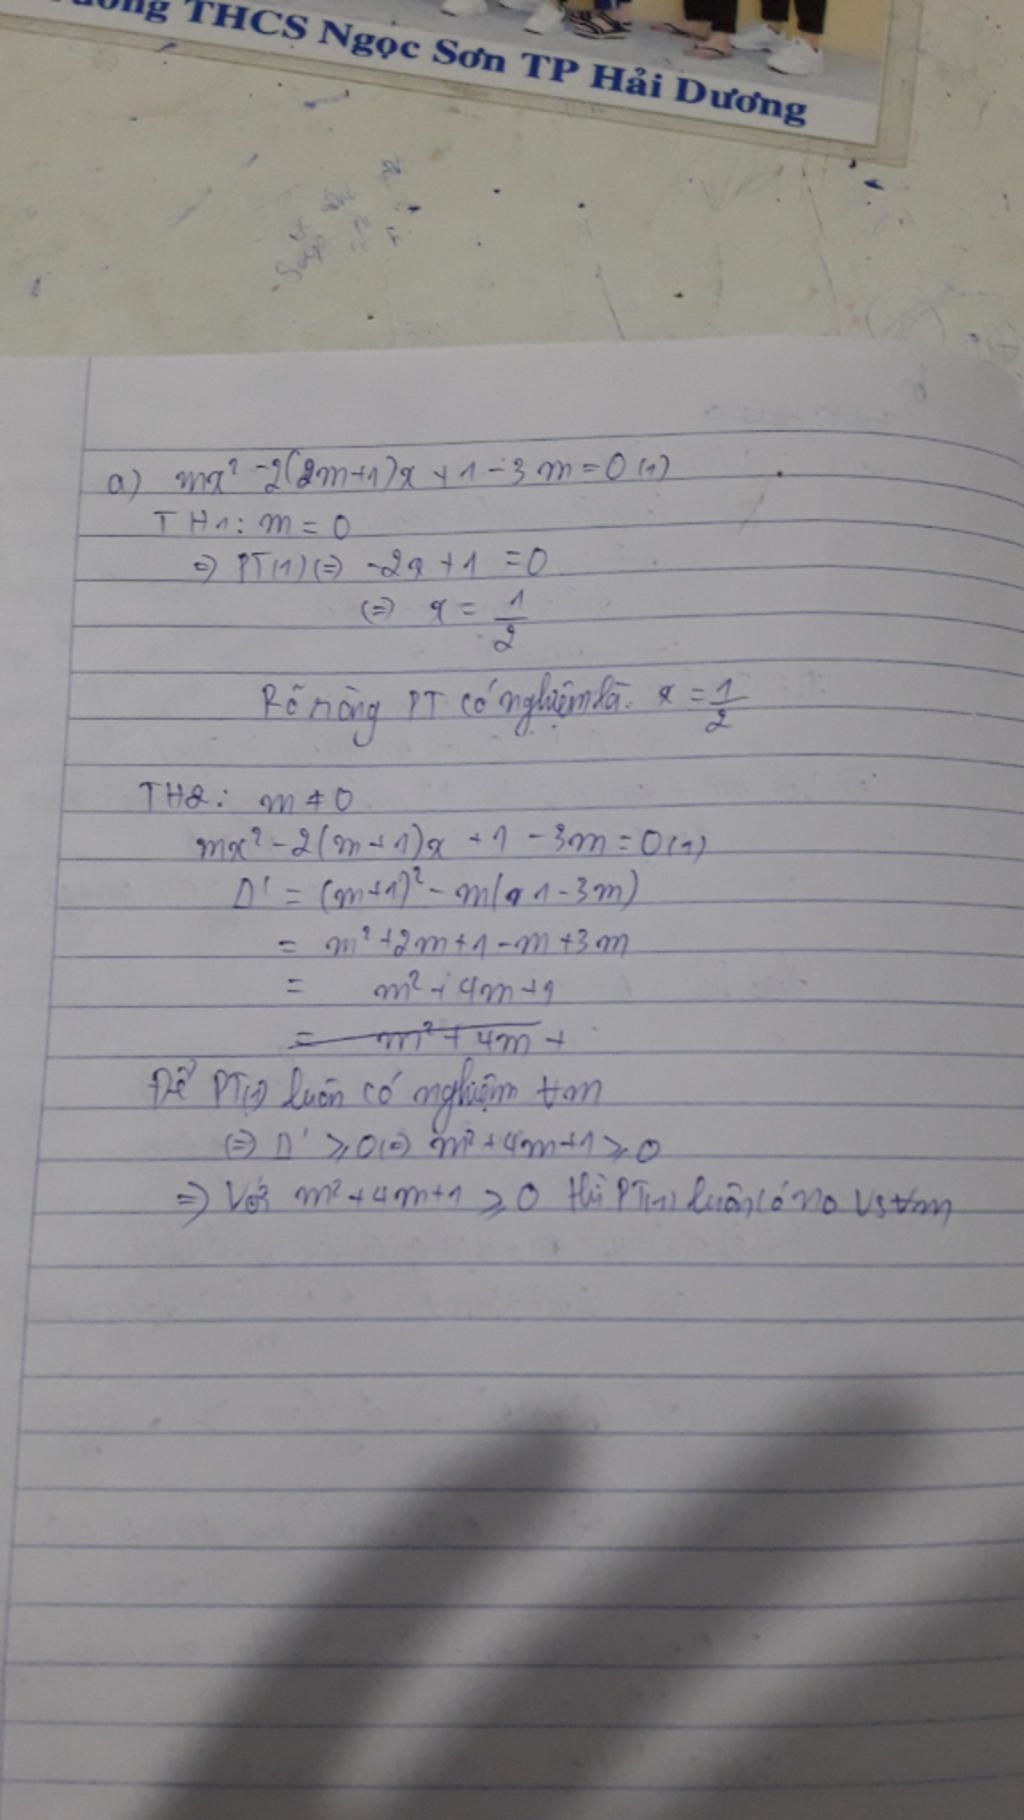 THCS Ngọc Sơn TP Hải Dương
a) mx² -2(2m+1)x + 1 - 3m = 0 (1)
TH1: m = 0
=> PT(1) (=> -2x + 1 = 0
(=> x = 1/2
Rõ ràng PT có nghiệm là. x = 1/2
TH2: m ≠ 0
mx² - 2(m+1)x + 1 - 3m = 0 (1)
Δ' = (m+1)² - m(1-3m)
= m² + 2m + 1 - m + 3m
= m² + 4m + 1
= m² + 4m +
Để PT(1) luôn có nghiệm ∀m
(=> Δ' ≥ 0 (=> m² + 4m + 1 ≥ 0
=> Với m² + 4m + 1 ≥ 0 thì PT(1) luôn có no vs ∀m